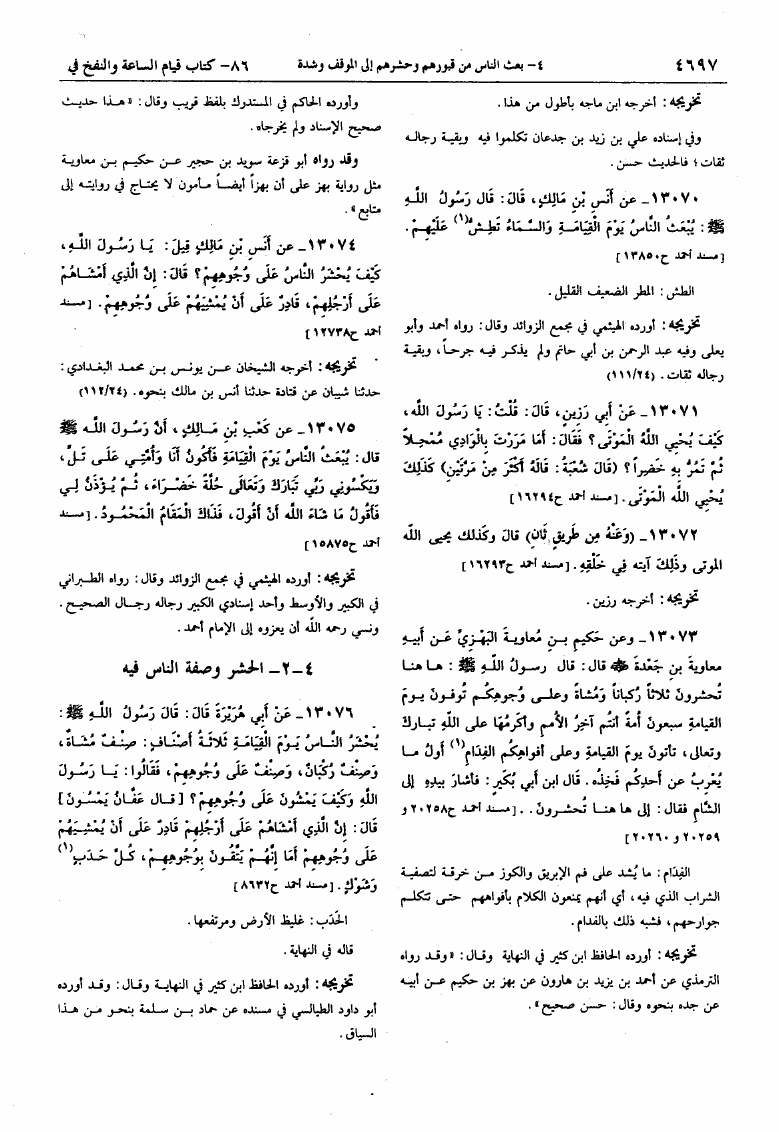 ٨٦- كتاب قيام الساعة والنفخ في
٤- بعث الناس من قبورهم وحشرهم إلى الموقف وشدة
٤٦٩٧
تخريجه: أخرجه ابن ماجه بأطول من هذا.
وفي إسناده علي بن زيد بن جدعان تكلموا فيه وبقية رجاله
ثقات؛ فالحديث حسن.
١٣٠٧٠- عن أَنَسِ بْنِ مَالِكٍ، قَالَ: قَالَ رَسُولُ اللَّهِ
ﷺ: يُبْعَثُ النَّاسُ يَوْمَ الْقِيَامَةِ وَالسَّمَاءُ تَطِشُّ(١) عَلَيْهِمْ.
[مسند أحمد ح١٣٨٥٠]
الطش: المطر الضعيف القليل.
تخريجه: أورده الهيثمي في مجمع الزوائد وقال: رواه أحمد وأبو
يعلى وفيه عبد الرحمن بن أبي حاتم ولم يذكر فيه جرحاً، وبقية
رجاله ثقات. (١١١/٢٤)
١٣٠٧١- عَنْ أَبِي رَزِينٍ، قَالَ: قُلْتُ: يَا رَسُولَ الله،
كَيْفَ يُحْيِي اللَّهُ الْمَوْتَى؟ فَقَالَ: أَمَا مَرَرْتَ بِالْوَادِي مُمْحِلاً
ثُمَّ تَمُرُّ بِهِ خَضِراً؟ (قَالَ شُعْبَةُ: قَالَهُ أَكْثَرَ مِنْ مَرَّتَيْنِ) كَذَلِكَ
يُحْيِي اللَّه الْمَوْتَى. [مسند أحمد ح١٦٢٩٤]
١٣٠٧٢- (وَعَنْهُ مِن طَرِيقٍ ثَانٍ) قالَ وكَذلك يحيى الله
الموتى وذَلِكَ آيته فِي خَلْقِهِ. [مسند أحمد ح١٦٢٩٣]
تخريجه: أخرجه رزين.
١٣٠٧٣- وعن حَكيمِ بـنِ مُعاويةَ البَهْزِيِّ عَـن أَبيهِ
معاويةَ بنِ حَيْدةَ ﷺ قال: قال رسـولُ اللـهِ ﷺ: هـا هنـا
تُحشرونَ ثلاثاً رُكباناً ومُشاةً وعلـى وُجوهِكُـم تُوفـونَ يـومَ
القيامةِ سبعونَ أُمةً أنتُم آخِرُ الأُممِ وأَكرمُها على اللَّهِ تبـاركَ
وتعالى، تأتونَ يومَ القيامةِ وعلى أفواهِكُم الفِدَامُ(١) أولُ مـا
يُعْرِبُ عن أحدِكُم فَخِذُه. قال ابن أبي بُكَيرٍ: فأشارَ بيدهِ إلى
الشَّامِ فقال: إلى هـا هنـا تُحشـرونَ. . [مسند أحمد ح٢٠٢٥٨ و
٢٠٢٥٩ و ٢٠٢٦٠]
الفِدَام: ما يُشد على فم الإبريق والكوز مـن خرقة لتصفية
الشراب الذي فيه، أي أنهم يمنعون الكلام بأفواههم حتى تتكلم
جوارحهم، فشبه ذلك بالفدام.
تخريجه: أورده الحافظ ابن كثير في النهاية وقال: «وقد رواه
الترمذي عن أحمد بن يزيد بن هارون عن بهز بن حكيم عن أبيه
عن جده بنحوه وقال: حسن صحيح».
وأورده الحاكم في المستدرك بلفظ قريب وقال: «هـذا حديث
صحيح الإسناد ولم يخرجاه.
وقد رواه أبو قزعة سويد بن حجير عـن حكيم بـن معاوية
مثل رواية بهز على أن بهزاً أيضاً مأمون لا يحتاج في روايته إلى
متابع».
١٣٠٧٤- عن أَنَسِ بْنِ مَالِكٍ قِيلَ: يَـا رَسُـولَ اللَّـهِ،
كَيْفَ يُحْشَرُ النَّاسُ عَلَى وُجُوهِهِمْ؟ قَالَ: إِنَّ الَّذِي أَمْشَاهُمْ
عَلَى أَرْجُلِهِمْ، قَادِرٌ عَلَى أَنْ يُمْشِيَهُمْ عَلَى وُجُوهِهِمْ. [مسند
أحمد ح١٢٧٣٨]
تخريجه: أخرجه الشيخان عـن يونس بـن محمد البغدادي:
حدثنا شيبان عن قتادة حدثنا أنس بن مالك بنحوه. (١١٢/٢٤)
١٣٠٧٥- عن كَعْبِ بْنِ مَـالِكٍ، أَنَّ رَسُـولَ اللَّـه ﷺ
قال: يُبْعَثُ النَّاسُ يَوْمَ الْقِيَامَةِ فَأَكُونُ أَنَا وَأُمَّتِي عَلَـى تَـلٍّ،
وَيَكْسُونِي رَبِّي تَبَارَكَ وَتَعَالَى حُلَّةً خَضْـرَاءَ، ثُـمَّ يُـؤْذَنُ لِـي
فَأَقُولُ مَا شَاءَ اللَّه أَنْ أَقُولَ، فَذَاكَ الْمَقَامُ الْمَحْمُـودُ. [مسند
أحمد ح١٥٨٧٥]
تخريجه: أورده الهيثمي في مجمع الزوائد وقال: رواه الطبراني
في الكبير والأوسط وأحد إسنادي الكبير رجاله رجـال الصحيح.
ونسي رحمه اللَّه أن يعزوه إلى الإمام أحمد.
٤-٢- الحشر وصفة الناس فيه
١٣٠٧٦- عَنْ أَبِي هُرَيْرَةَ قَالَ: قَالَ رَسُولُ اللَّهِ ﷺ:
يُحْشَرُ النَّـاسُ يَـوْمَ الْقِيَامَةِ ثَلَاثَةَ أَصْنَافٍ: صِنْفٌ مُشَاةٌ،
وَصِنْفٌ رُكْبَانٌ، وَصِنْفٌ عَلَى وُجُوهِهِمْ، فَقَالُوا: يَـا رَسُـولَ
اللَّهِ وَكَيْفَ يَمْشُونَ عَلَى وُجُوهِهِمْ؟ [قـال عَفَّـان يَمْسُـونَ]
قَالَ: إِنَّ الَّذِي أَمْشَاهُمْ عَلَى أَرْجُلِهِمْ قَادِرٌ عَلَى أَنْ يُمْشِيَهُمْ
عَلَى وُجُوهِهِمْ أَمَا إِنَّهُـمْ يَتَّقُـونَ بِوُجُوهِهِـمْ، كُـلَّ حَـدَبٍ(١)
وَشَوْكٍ. [مسند أحمد ح٨٦٣٢]
الحَدَب: غليظ الأرض ومرتفعها.
قاله في النهاية.
تخريجه: أورده الحافظ ابن كثير في النهايـة وقـال: وقـد أورده
أبو داود الطيالسي في مسنده عن حماد بـن سـلمة بنحـو مـن هـذا
السياق.